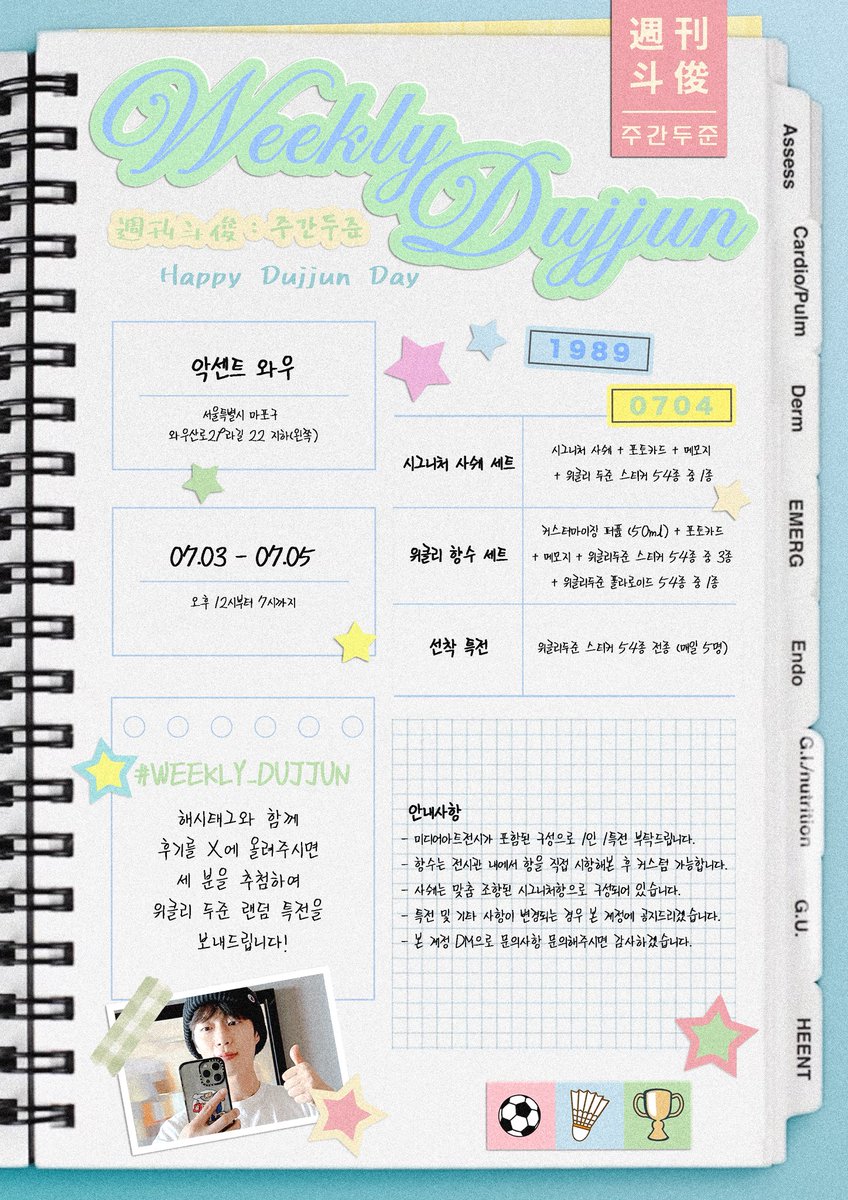 週刊
斗俊
주간두준
Weekly
Dujjun
週刊斗俊 : 주간두준
Happy Dujjun Day
악센트 와우
서울특별시 마포구
와우산로29라길 22 지하(왼쪽)
07.03 - 07.05
오후 12시부터 7시까지
1989
0704
시그니처 사쉐 세트
시그니처 사쉐 + 포토카드 + 메모지
+ 위클리 두준 스티커 54종 중 1종
위클리 향수 세트
커스터마이징 퍼퓸 (50ml) + 포토카드
+ 메모지 + 위클리두준 스티커 54종 중 3종
+ 위클리두준 폴라로이드 54종 중 1종
선착 특전
위클리두준 스티커 54종 전종 (매일 5명)
#WEEKLY_DUJJUN
해시태그와 함께
후기를 X에 올려주시면
세 분을 추첨하여
위클리 두준 랜덤 특전을
보내드립니다!
안내사항
- 미디어아트전시가 포함된 구성으로 1인 1특전 부탁드립니다.
- 향수는 전시관 내에서 향을 직접 시향해본 후 커스텀 가능합니다.
- 사쉐는 맞춤 조향된 시그니처향으로 구성되어 있습니다.
- 특전 및 기타 사항이 변경되는 경우 본 계정에 공지드리겠습니다.
- 본 계정 DM으로 문의사항 문의해주시면 감사하겠습니다.
Assess
Cardio/Pulm
Derm
EMERG
Endo
G.I./nutrition
G.U.
HEENT